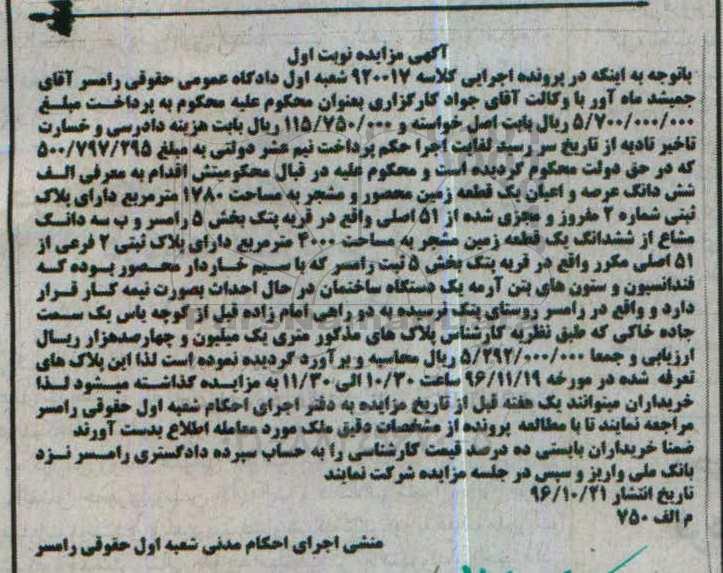 آگهی مزایده نوبت اول
باتوجه به اینکه در پرونده اجرایی کلاسه ۹۲۰۰۱۷ شعبه اول دادگاه عمومی حقوقی رامسر آقای
جمیشد ماه آور با وکالت آقای جواد کارگزاری بعنوان محکوم علیه محکوم به پرداخت مبلغ
۵/۷۰۰/۰۰۰/۰۰۰ ریال بابت اصل خواسته و ۱۱۵/۷۵۰/۰۰۰ ریال بابت هزینه دادرسی و خسارت
تاخیر تادیه از تاریخ سر رسید لغایت اجرا حکم پرداخت نیم عشر دولتی به مبلغ ۵۰۰/۷۹۷/۲۹۵
که در حق دولت محکوم گردیده است و محکوم علیه در قبال محکومیتش اقدام به معرفی الف
شش دانگ عرصه و اعیان یک قطعه زمین محصور و مشجر به مساحت ۱۷۸۰ مترمربع دارای پلاک
ثبتی شماره ۲ مفروز و مجزی شده از ۵۱ اصلی واقع در قریه پتک بخش ۵ رامسر و ب سه دانگ
مشاع از ششدانگ یک قطعه زمین مشجر به مساحت ۴۰۰۰ مترمربع دارای پلاک ثبتی ۲ فرعی از
۵۱ اصلی مکرر واقع در قریه پتک بخش ۵ ثبت رامسر که با سیم خاردار محصور بوده که
فندانسیون و ستون های بتن آرمه یک دستگاه ساختمان در حال احداث بصورت نیمه کار قرار
دارد و واقع در رامسر روستای پتک نرسیده به دو راهی امام زاده قبل از کوچه یاس یک سمت
جاده خاکی که طبق نظریه کارشناس پلاک های مذکور متری یک میلیون و چهارصدهزار ریال
ارزیابی و جمعا ۵/۲۹۲/۰۰۰/۰۰۰ ریال محاسبه و برآورد گردیده نموده است لذا این پلاک های
تعرفه شده در مورخه ۹۶/۱۱/۱۹ ساعت ۱۰/۳۰ الی ۱۱/۳۰ به مزایده گذاشته میشود لذا
خریداران میتوانند یک هفته قبل از تاریخ مزایده به دفتر اجرای احکام شعبه اول حقوقی رامسر
مراجعه نمایند تا با مطالعه پرونده از مشخصات دقیق ملک مورد معامله اطلاع بدست آورند
ضمنا خریداران بایستی ده درصد قیمت کارشناسی را به حساب سپرده دادگستری رامسر نزد
بانک ملی واریز و سپس در جلسه مزایده شرکت نمایند
تاریخ انتشار ۹۶/۱۰/۲۱
م الف ۷۵۰
منشی اجرای احکام مدنی شعبه اول حقوقی رامسر